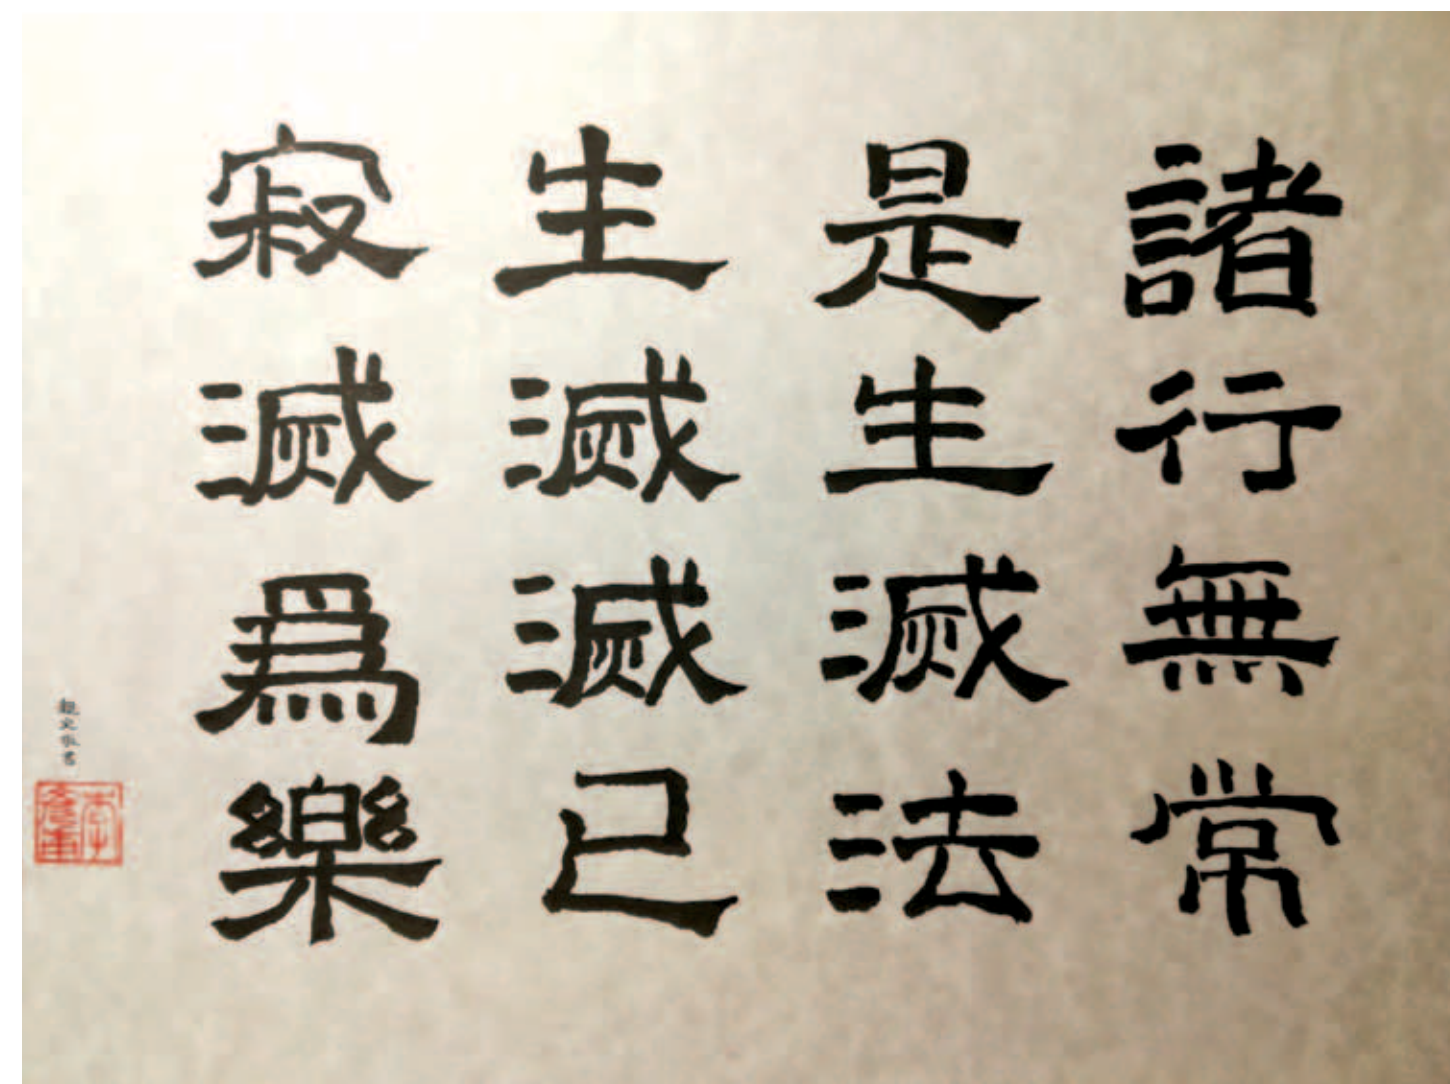 諸行無常
是生滅法
生滅滅已
寂滅爲樂